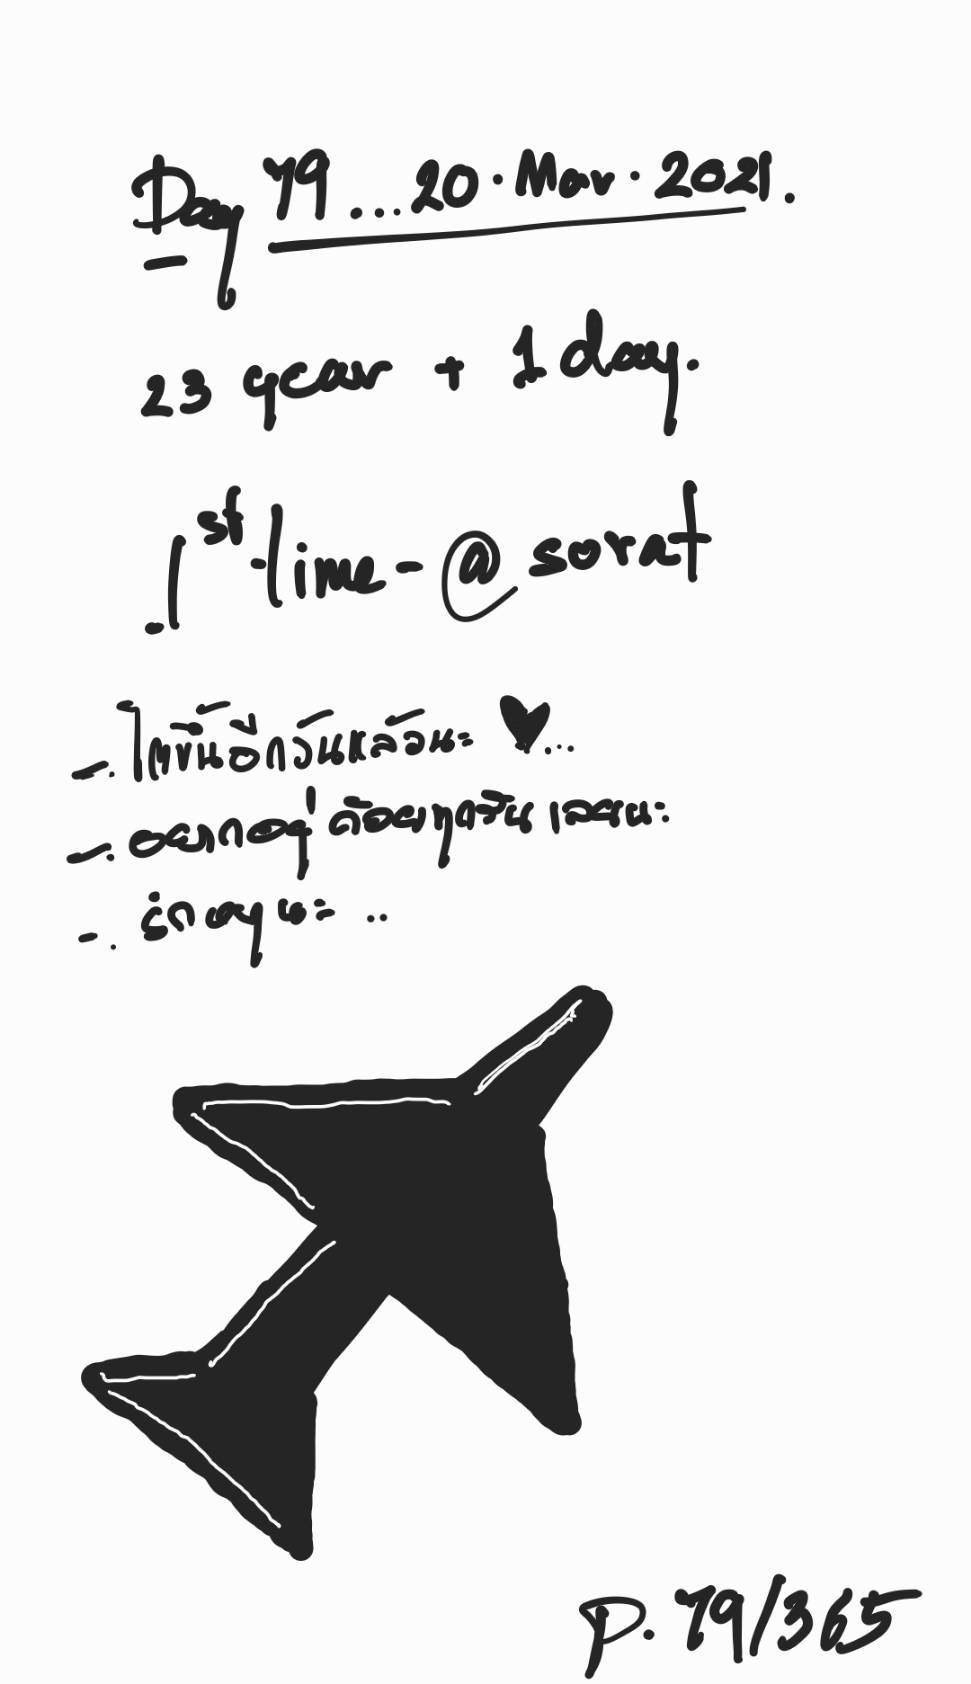 Day 79 ... 20 · Mar · 2021.
23 year + 1 day.
1st time - @ sorat
- . โตขึ้นอีกวันแล้วนะ ♥...
- . อยากอยู่ด้วยทุกวันเลยนะ.
- . รักหนูนะ ..
P. 79/365